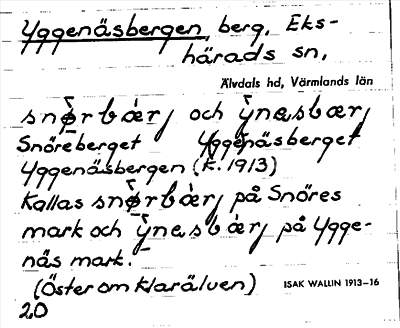 Yggenäsbergen, berg, Eks-
härads sn,
Älvdals hd, Värmlands län
snø̀rbæ̀rj och ỳnəsbærj
Snöreberget Yggenäsberget
Yggenäsbergen (k. 1913)
Kallas snø̀rbæ̀rj på Snöres
mark och ỳnəsbæ̀rj på Ygge-
näs mark.
(Öster om Klarälven) ISAK WALLIN 1913-16
20